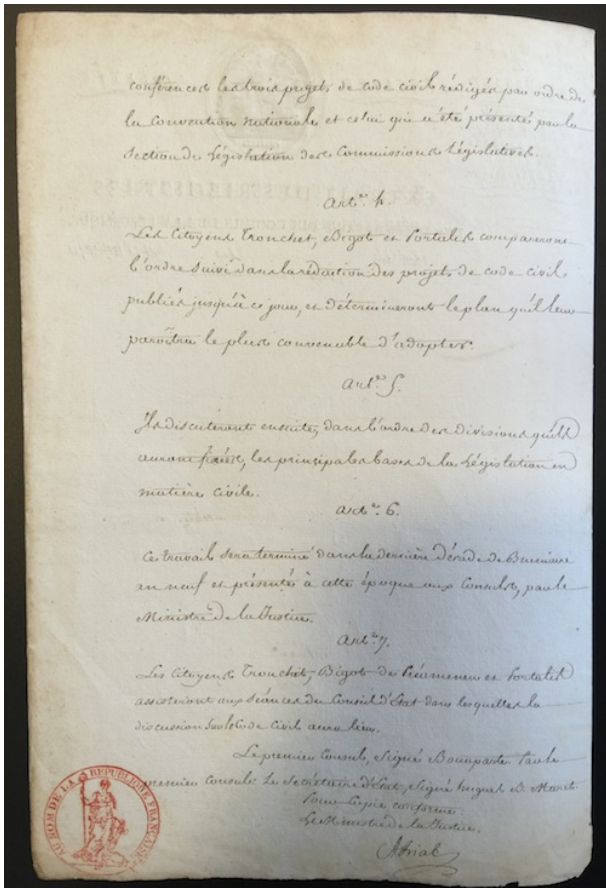 conférences les trois projets de code civil rédigés par ordre de
la Convention nationale et celui qui a été présenté par la
Section de Législation des Commissions Législatives.
Art.^le 4.
Les Citoyens Tronchet, Bigot et Portalis compareront
l'ordre suivi dans la rédaction des projets de code civil
publiés jusqu'à ce jour, et détermineront le plan qu'il leur
paroîtra le plus convenable d'adopter.
Art.^le 5.
Ils discuteront ensuite, dans l'ordre des divisions qu'ils
auront fixées, les principales bases de la Législation en
matière civile.
Art.^le 6.
Ce travail sera terminé dans la dernière décade de Brumaire
an neuf et présenté à cette époque aux Consuls, par le
Ministre de la Justice.
Art.^le 7.
Les Citoyens Tronchet, Bigot de Préameneu et Portalis
assisteront aux séances du Conseil d'Etat dans lesquelles la
discussion sur le Code Civil aura lieu.
Le premier Consul, Signé Bonaparte Par le
premier Consul: Le Secrétaire d'Etat, Signé hugues B. Maret.
Pour Copie conforme
Le Ministre de la Justice.
Abrial
AU NOM DE LA REPUBLIQUE FRANÇAISE